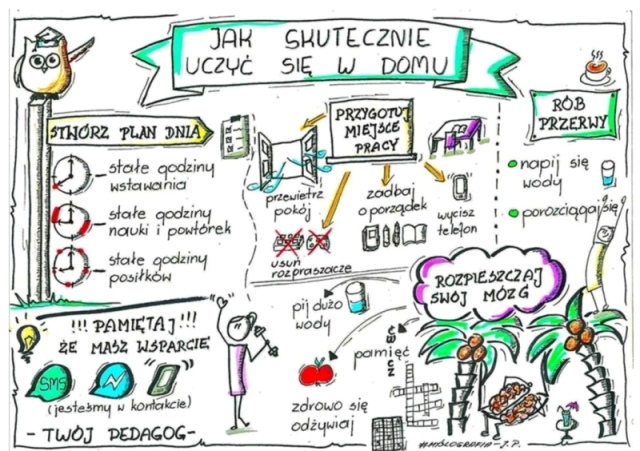 JAK SKUTECZNIE
UCZYĆ SIĘ W DOMU
STWÓRZ PLAN DNIA
- stałe godziny
wstawania
- stałe godziny
nauki i powtórek
- stałe godziny
posiłków
PRZYGOTUJ
MIEJSCE
PRACY
przewietrz
pokój
zadbaj
o porządek
wycisz
telefon
usuń
rozpraszacze
RÓB
PRZERWY
napij się
wody
porozciągaj się
ROZPIESZCZAJ
SWÓJ MÓZG
pij dużo
wody
ćwicz
pamięć
zdrowo się
odżywiaj
!!! PAMIĘTAJ !!!
ŻE MASZ WSPARCIE
SMS
(jesteśmy w kontakcie)
- TWÓJ PEDAGOG -
#MYŚLOGRAFIA - J.P.